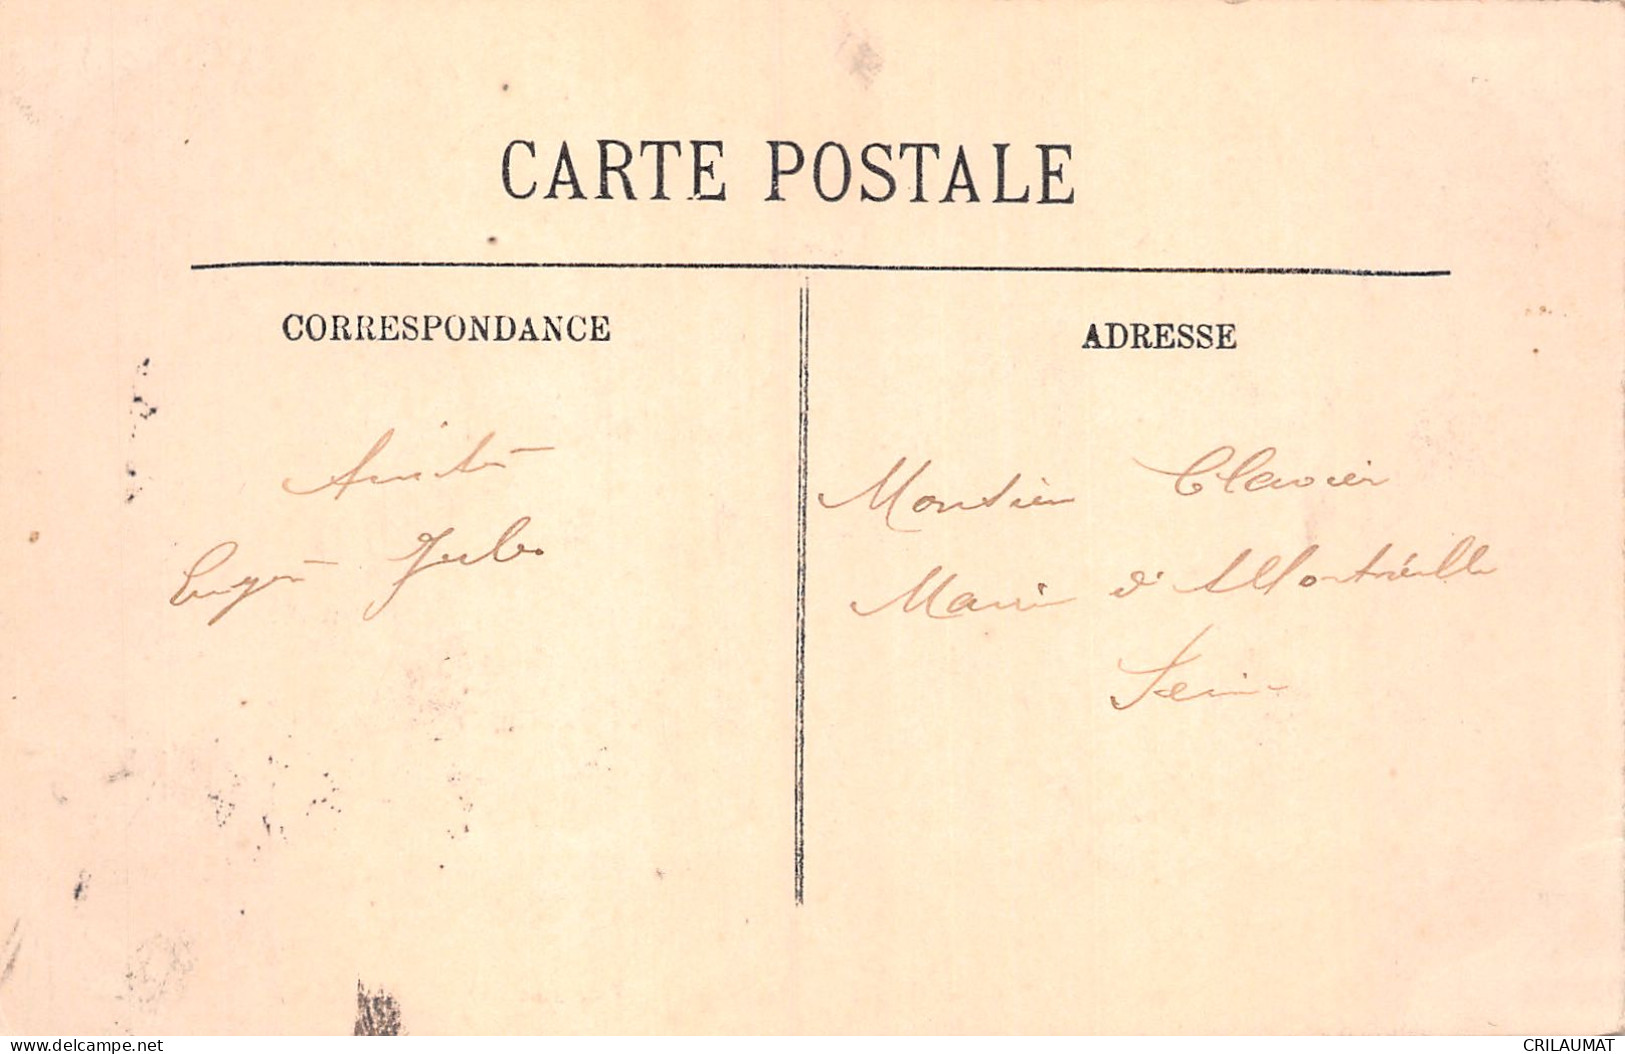 CARTE POSTALE
CORRESPONDANCE
ADRESSE
Amitiés
Eugène Jules
Monsieur Clavier
Mairie d' Montreuille
Seine
delcampe.net
CRILAUMAT